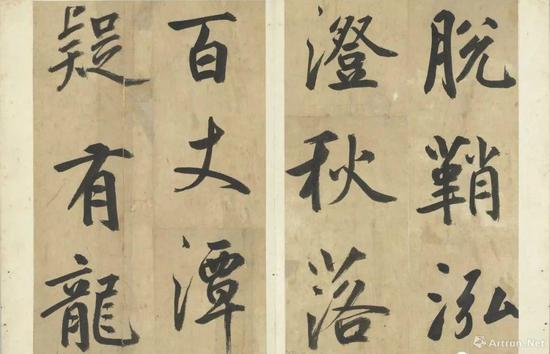 脱鞘泓
澄秋落
百丈潭
疑有龍
Artron.Net